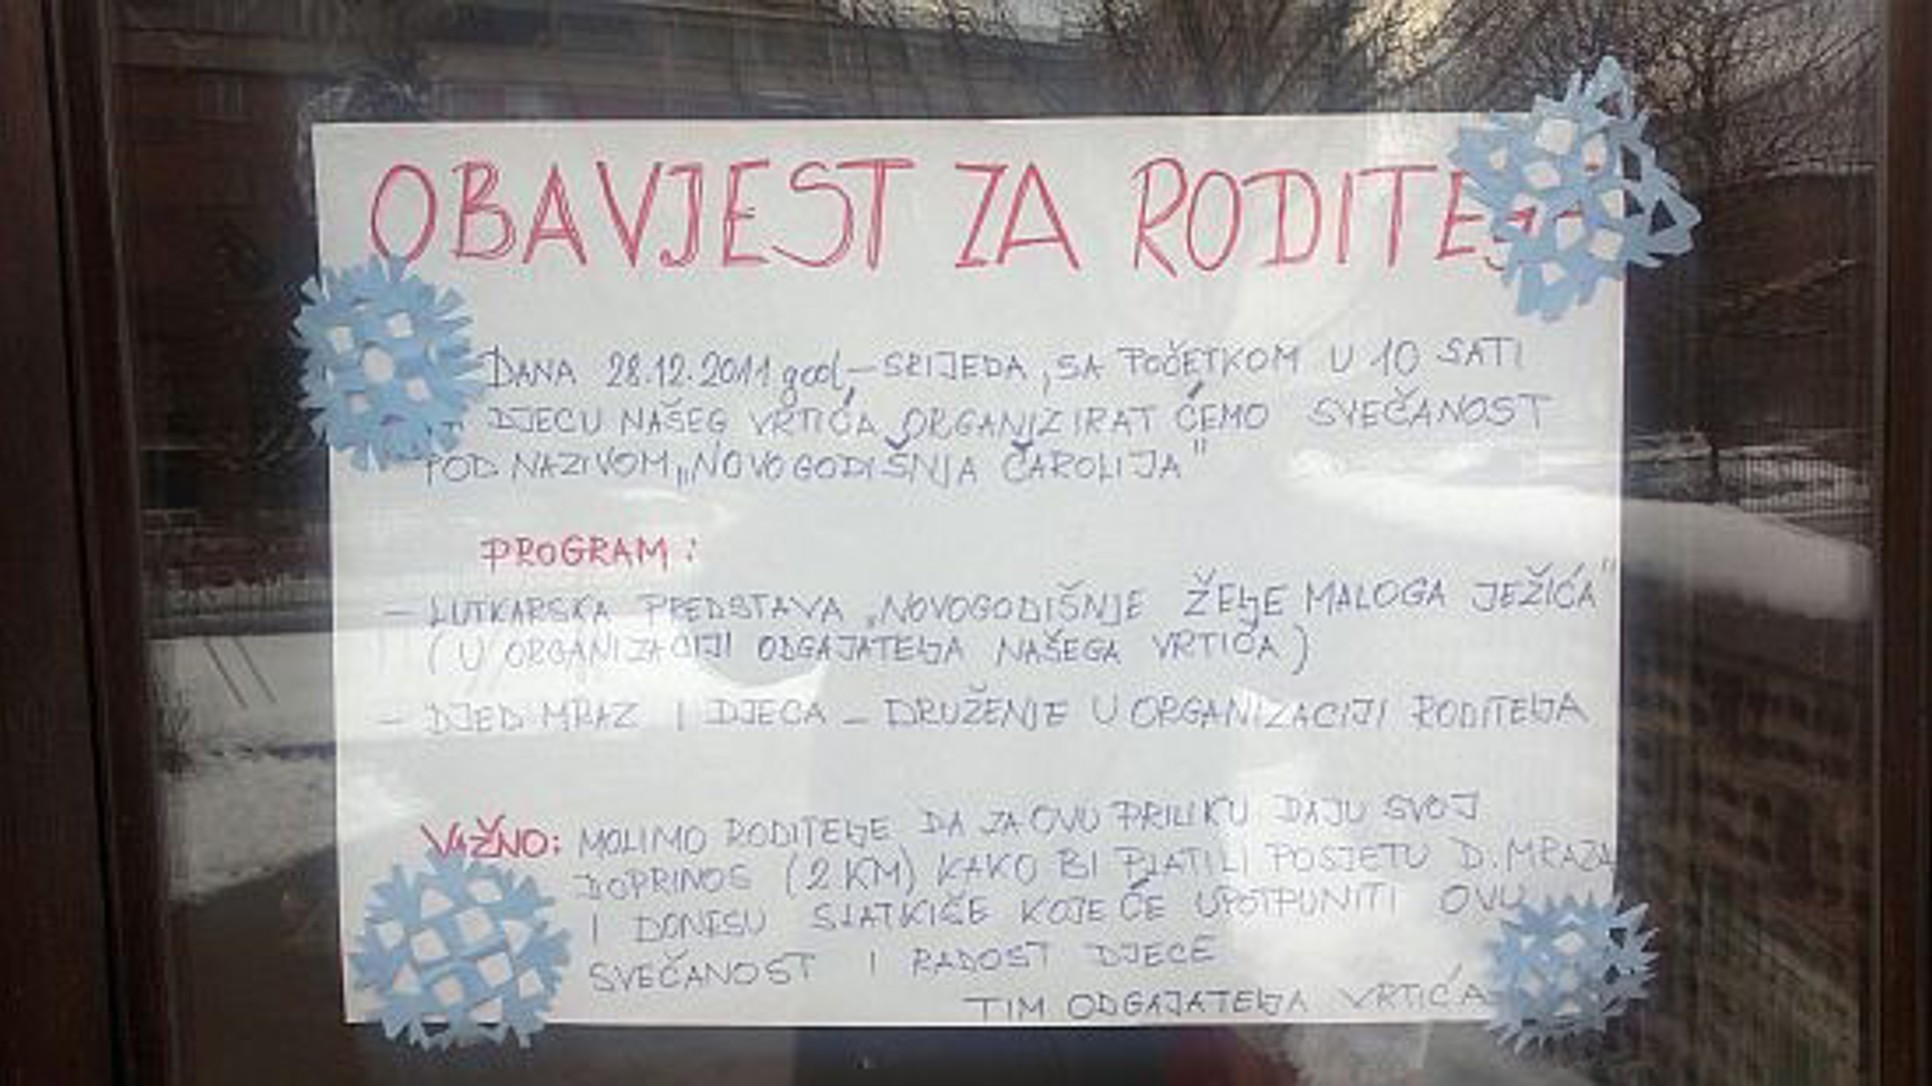 OBAVJEST ZA RODITE
DANA 28.12.2011 god,-SRIJEDA, SA POČETKOM U 10 SATI
DJECU NAŠEG VRTIĆA ORGANIZIRAT ĆEMO SVEČANOST
POD NAZIVOM „NOVOGODIŠNJA ČAROLIJA"
PROGRAM:
- LUTKARSKA PREDSTAVA „NOVOGODIŠNJE ŽELJE MALOGA JEŽIĆA"
(U ORGANIZACIJI ODGAJATELJA NAŠEGA VRTIĆA)
- DJED MRAZ I DJECA - DRUŽENJE U ORGANIZACIJI RODITELJA
VAŽNO: MOLIMO RODITELJE DA ZA OVU PRILIKU DAJU SVOJ
DOPRINOS (2 KM) KAKO BI PLATILI POSJETU D. MRAZA
I DONESU SLATKIŠE KOJE ĆE UPOTPUNITI OVU
SVEČANOST I RADOST DJECE
TIM ODGAJATELJA VRTIĆA